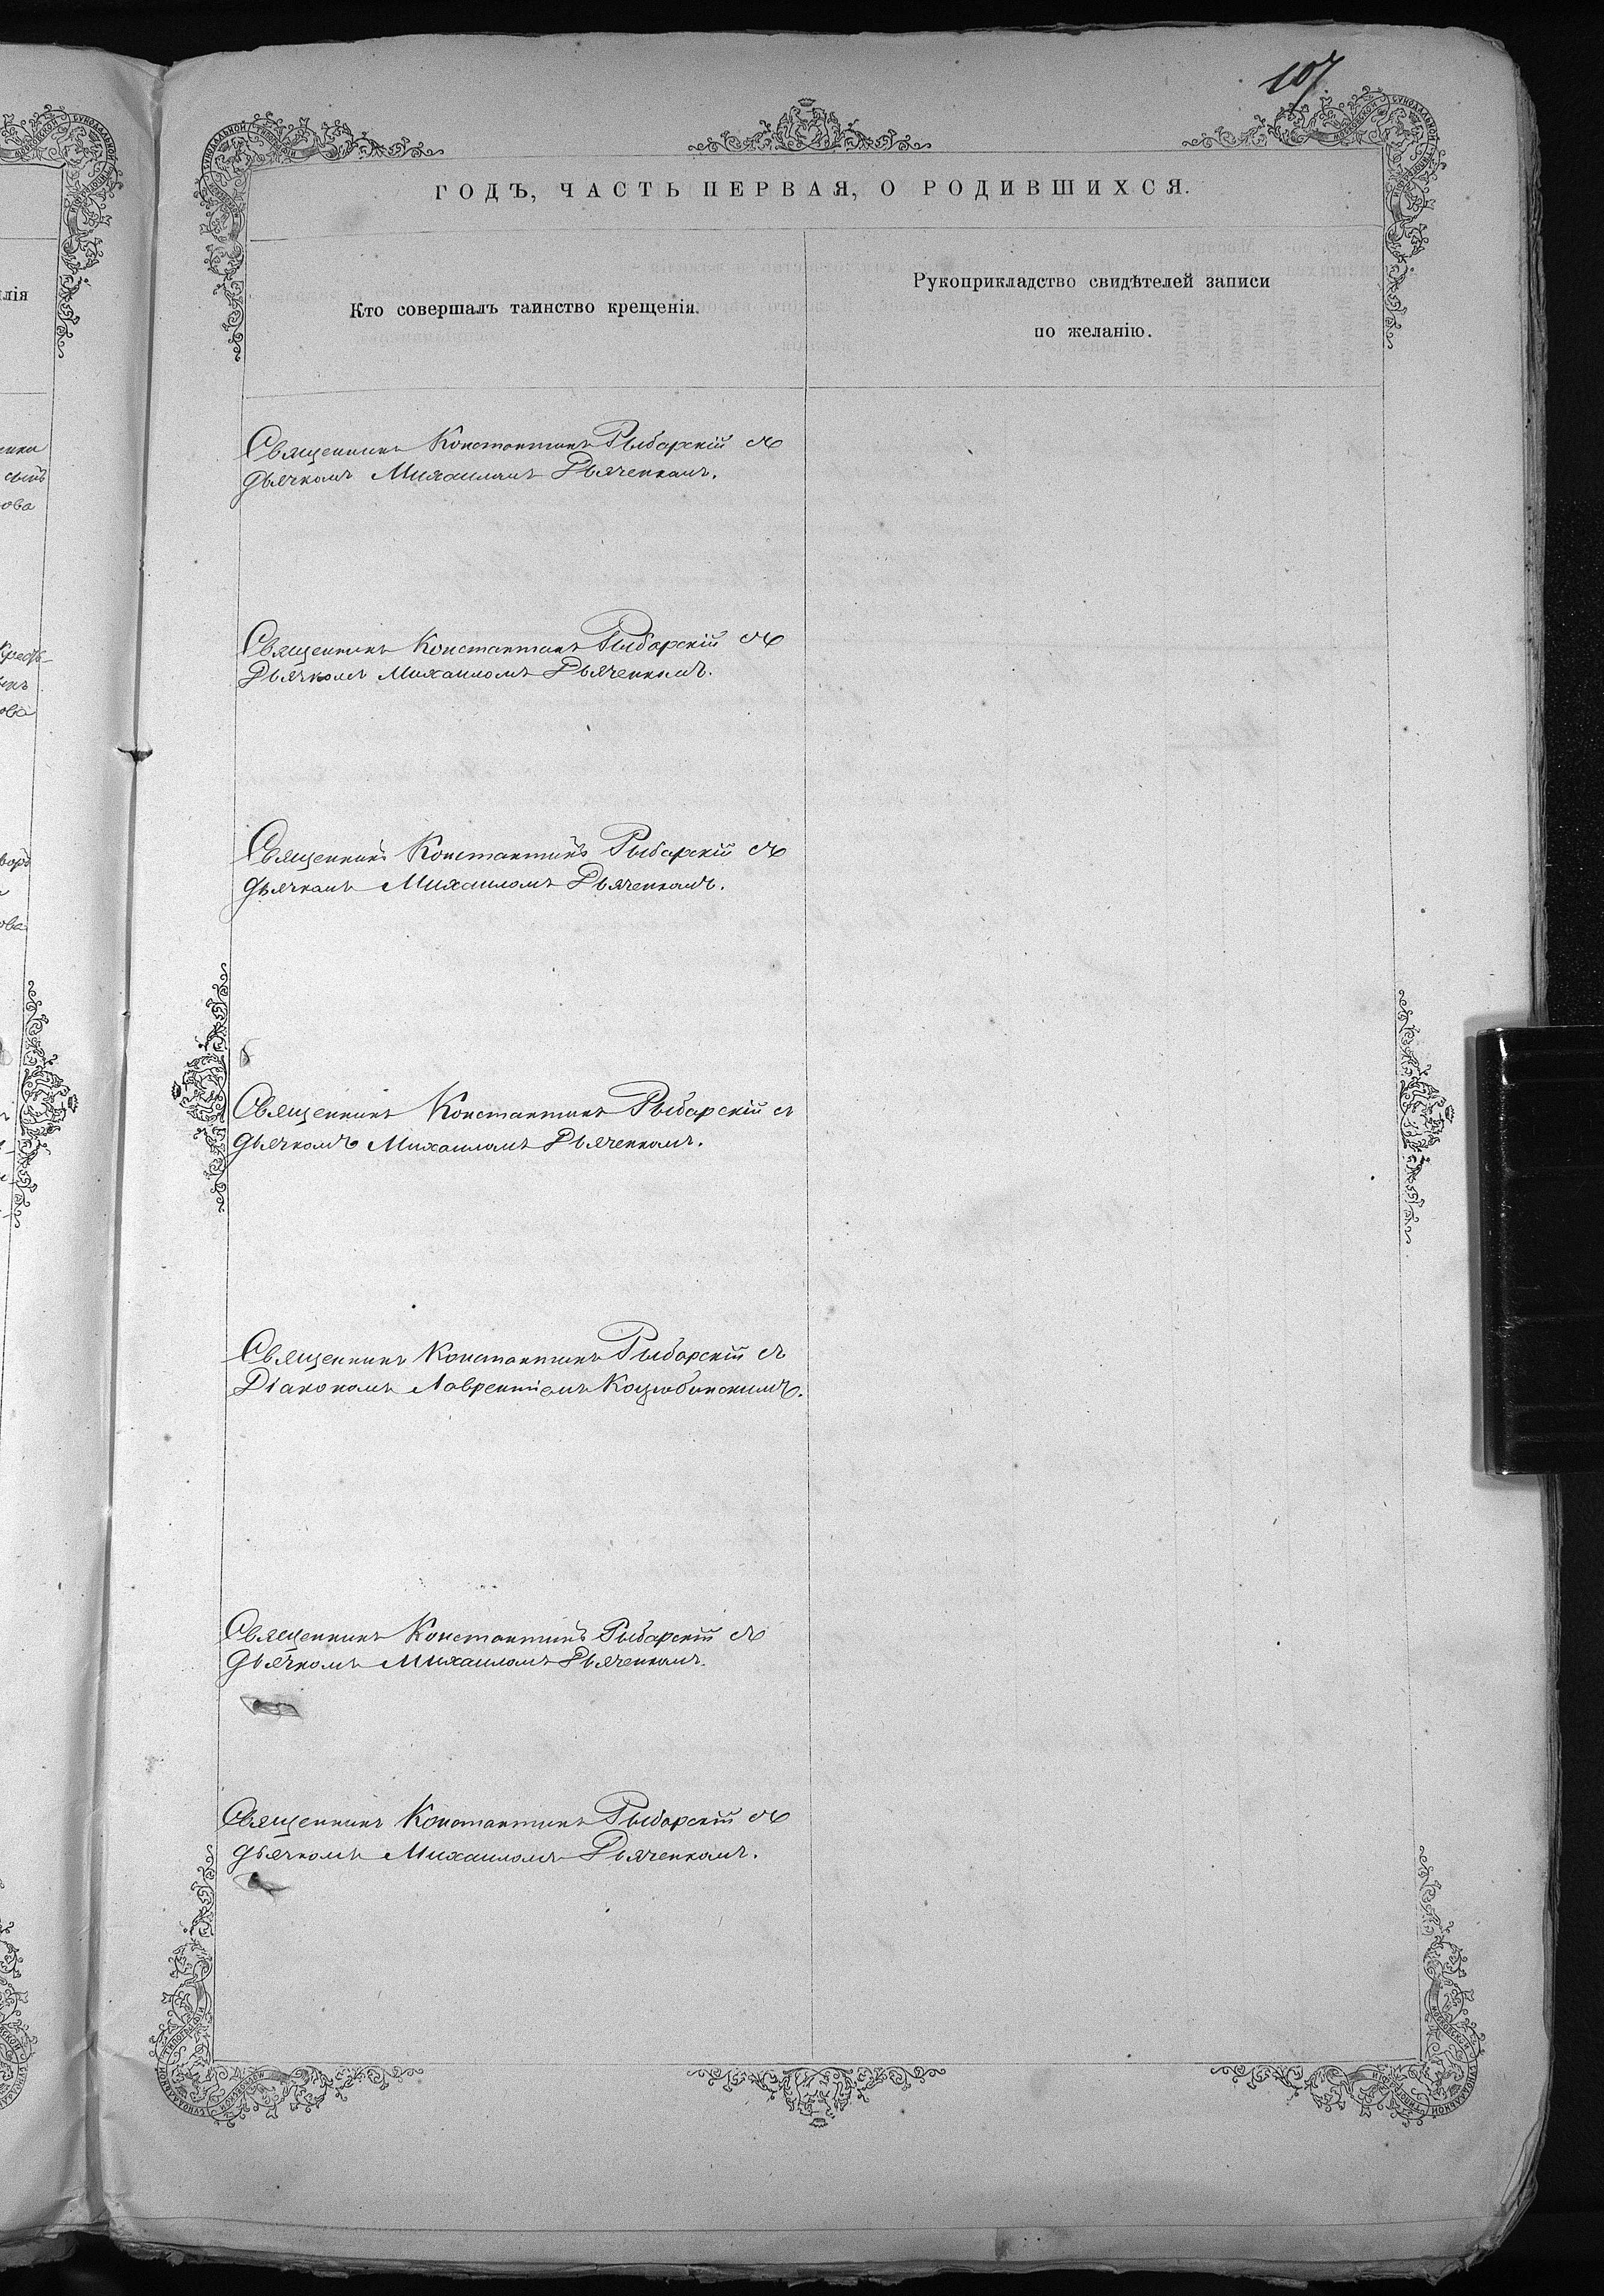 107.
ГОДЪ, ЧАСТЬ ПЕРВАЯ, О РОДИВШИХСЯ.
Кто совершалъ таинство крещенія.
Рукоприкладство свидѣтелей записи
по желанію.
Священникъ Константинъ Рыбарскій съ
дьячкомъ Михаиломъ Дьяченкомъ.
Священникъ Константинъ Рыбарскій съ
Дьячкомъ Михаиломъ Дьяченкомъ.
Священникъ Константинъ Рыбарскій съ
дьячкомъ Михаиломъ Дьяченкомъ.
Священникъ Константинъ Рыбарскій съ
дьячкомъ Михаиломъ Дьяченкомъ.
Священникъ Константинъ Рыбарскій съ
Діакономъ Лаврентіемъ Коцюбинскимъ.
Священникъ Константинъ Рыбарскій съ
дьячкомъ Михаиломъ Дьяченкомъ.
Священникъ Константинъ Рыбарскій съ
дьячкомъ Михаиломъ Дьяченкомъ.